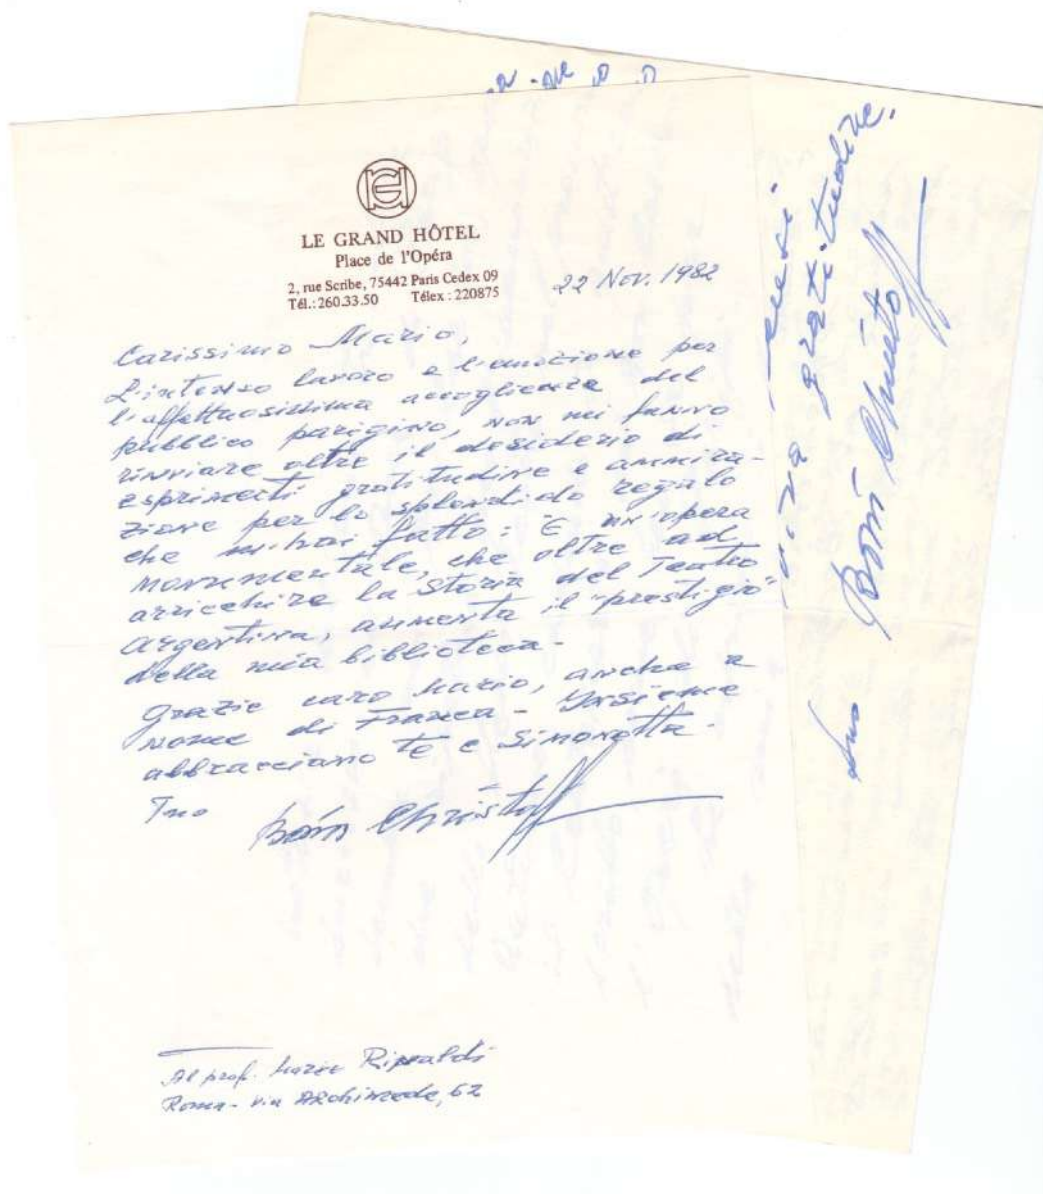 LE GRAND HÔTEL
Place de l'Opéra
2, rue Scribe, 75442 Paris Cedex 09
Tél.: 260.33.50 Télex : 220875
22 Nov. 1982
Carissimo Mario,
L'intenso lavoro e l'emozione per
l'affettuosissima accoglienza del
pubblico parigino, non mi fanno
rinviare oltre il desiderio di
esprimerti gratitudine e ammira-
zione per lo splendido regalo
che mi hai fatto: È un'opera
monumentale, che oltre ad
arricchire la Storia del Teatro
Argentina, aumenta il "prestigio"
della mia biblioteca -
Grazie caro Mario, anche a
nome di Franca - Insieme
abbracciamo te e Simonetta -
Tuo Boris Christoff
Al prof. Mario Rinaldi
Roma - via Archimede, 62
viva gratitudine.
Suo Boris Christoff